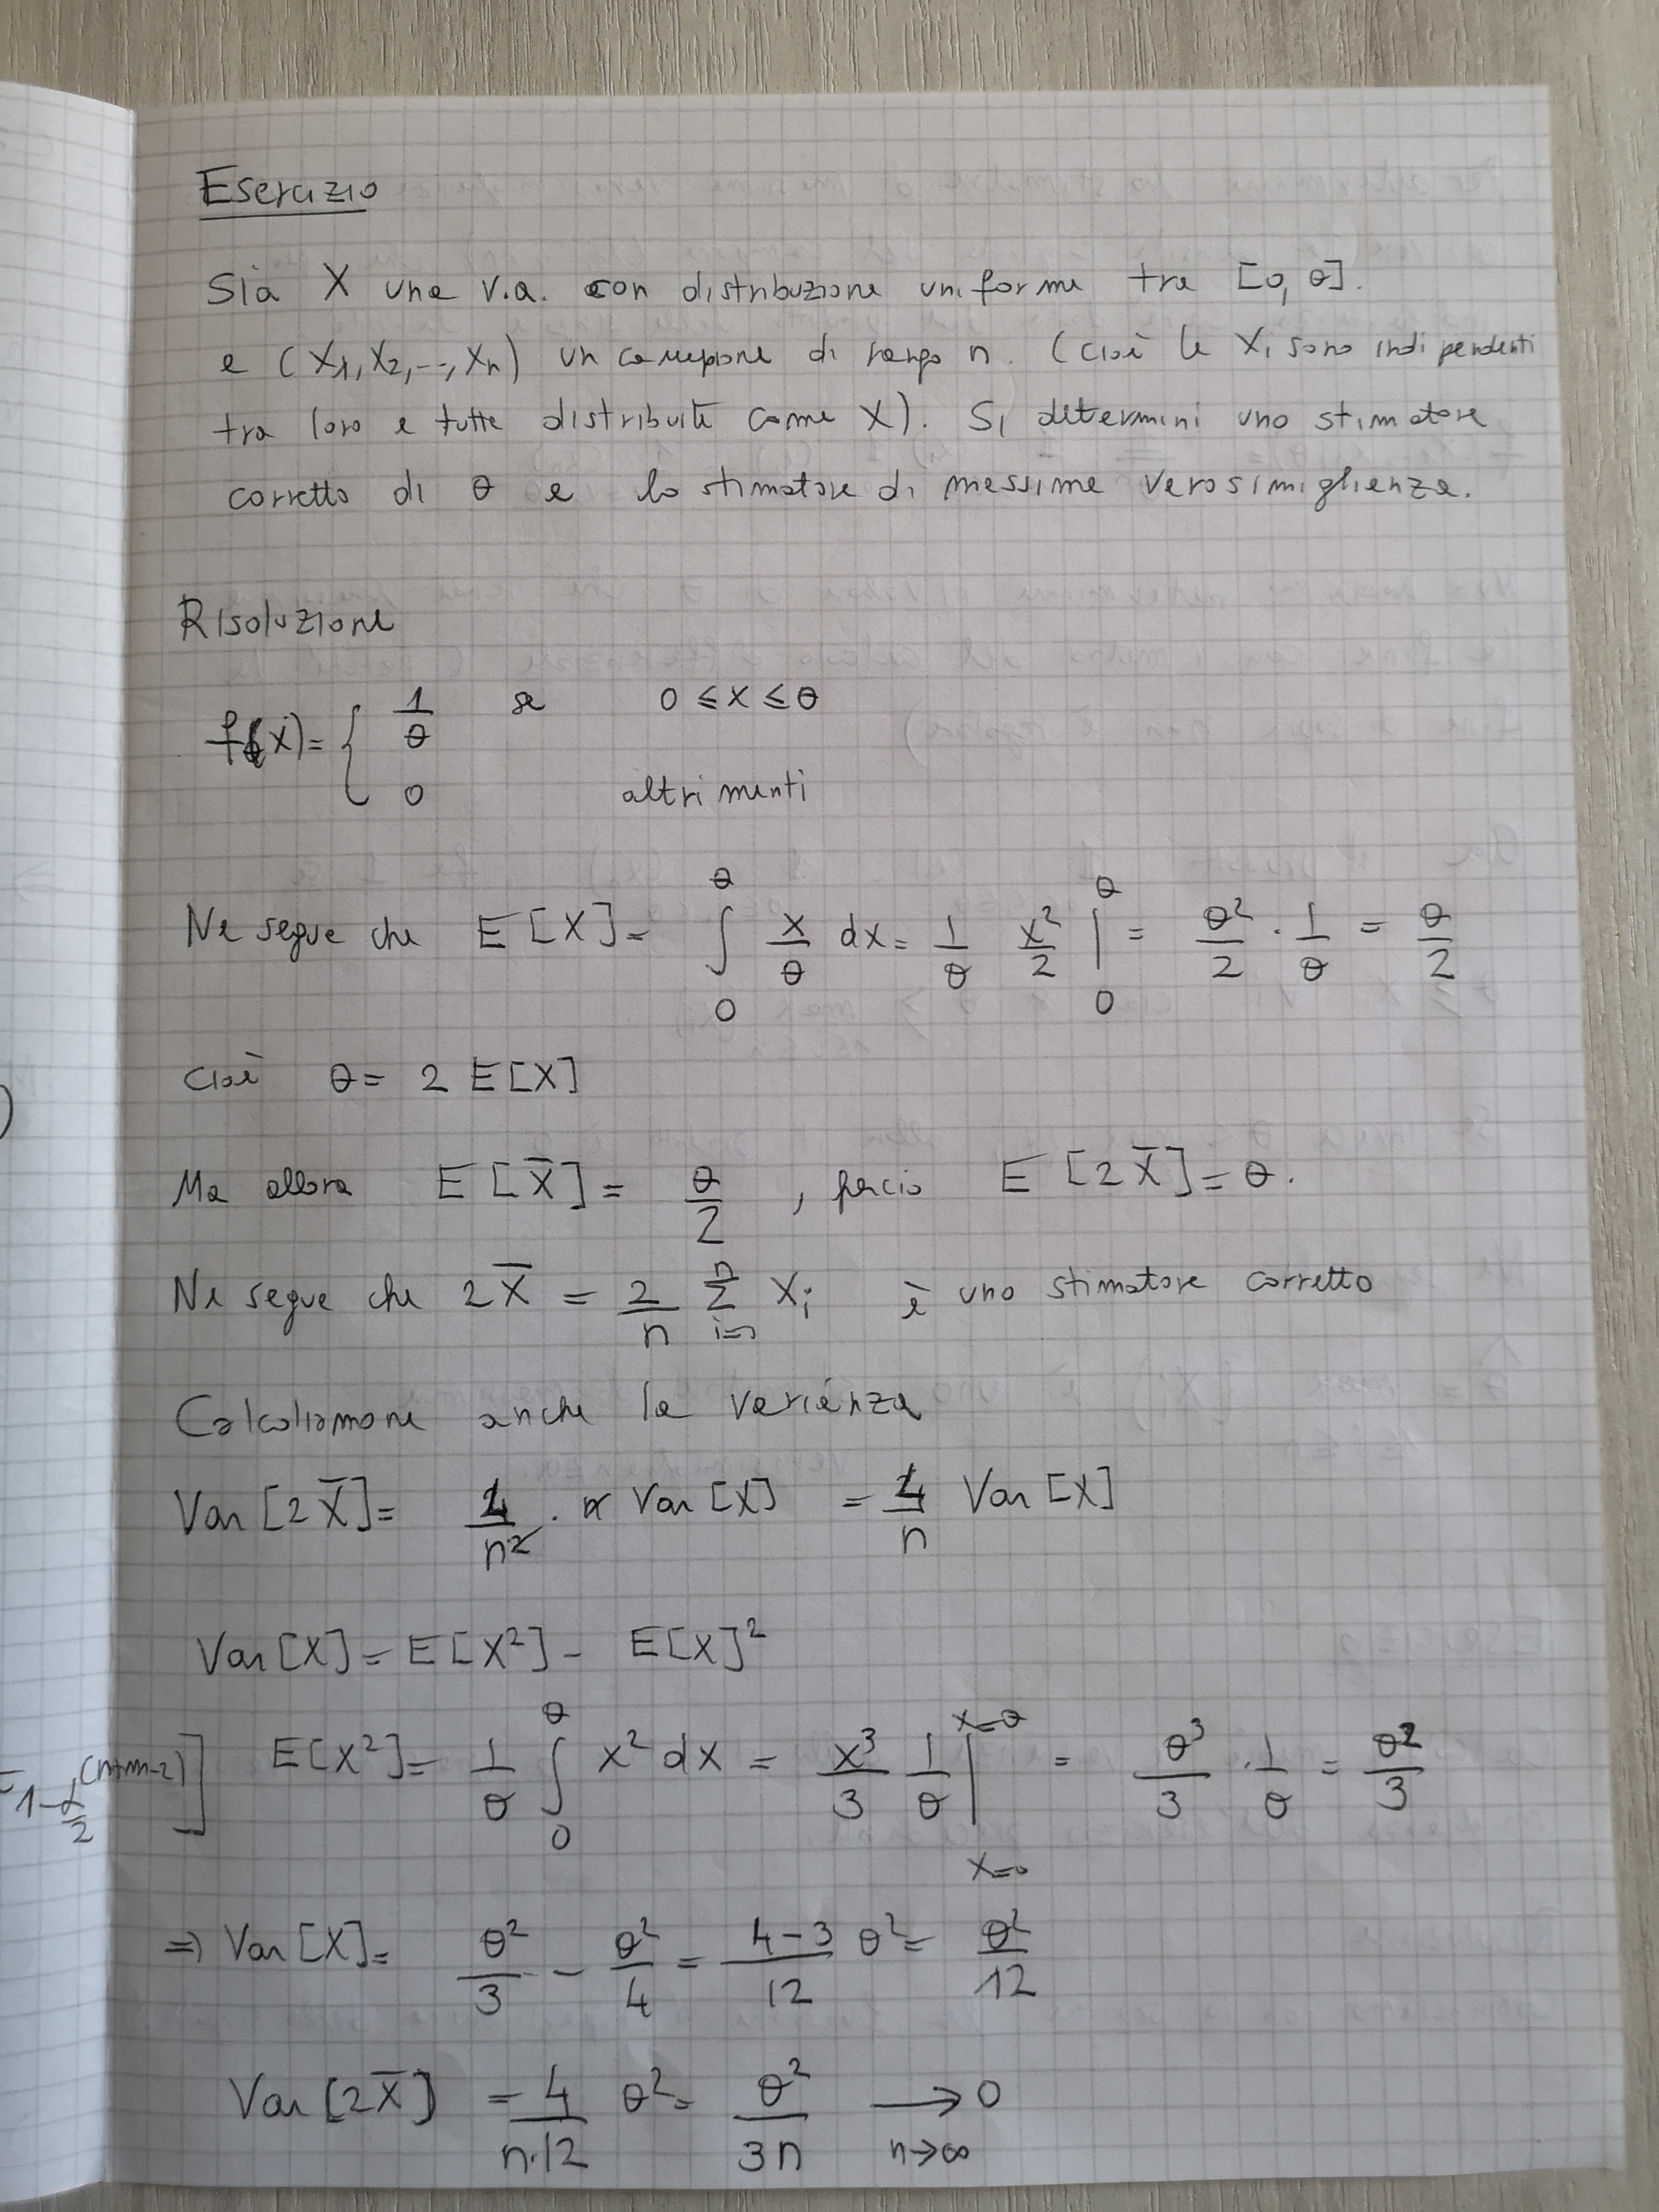 Esercizio
Sia X una v.a. con distribuzione uniforme tra [0, θ].
e (X1, X2, ..., Xn) un campione di rango n. (cioè le Xi sono indipendenti
tra loro e tutte distribuite come X). Si determini uno stimatore
corretto di θ e lo stimatore di massima verosimiglianza.
Risoluzione
f(x) = { 1/θ se 0 ≤ x ≤ θ
0 altrimenti
Ne segue che E[X] = ∫₀^θ x/θ dx = 1/θ x²/2 |₀^θ = θ²/2 · 1/θ = θ/2
Cioè θ = 2 E[X]
Ma allora E[X̄] = θ/2 , perciò E[2X̄] = θ.
Ne segue che 2X̄ = 2/n Σ Xi è uno stimatore corretto
Calcoliamone anche la varianza
Var[2X̄] = 4/n² · n Var[X] = 4/n Var[X]
Var[X] = E[X²] - E[X]²
E[X²] = 1/θ ∫₀^θ x² dx = x³/3 1/θ |_{x=0}^{x=θ} = θ³/3 · 1/θ = θ²/3
(n+m-2) ]
1-α/2
⇒ Var[X] = θ²/3 - θ²/4 = 4-3/12 θ² = θ²/12
Var[2X̄] = 4/n·12 θ² = θ²/3n → 0
n→∞